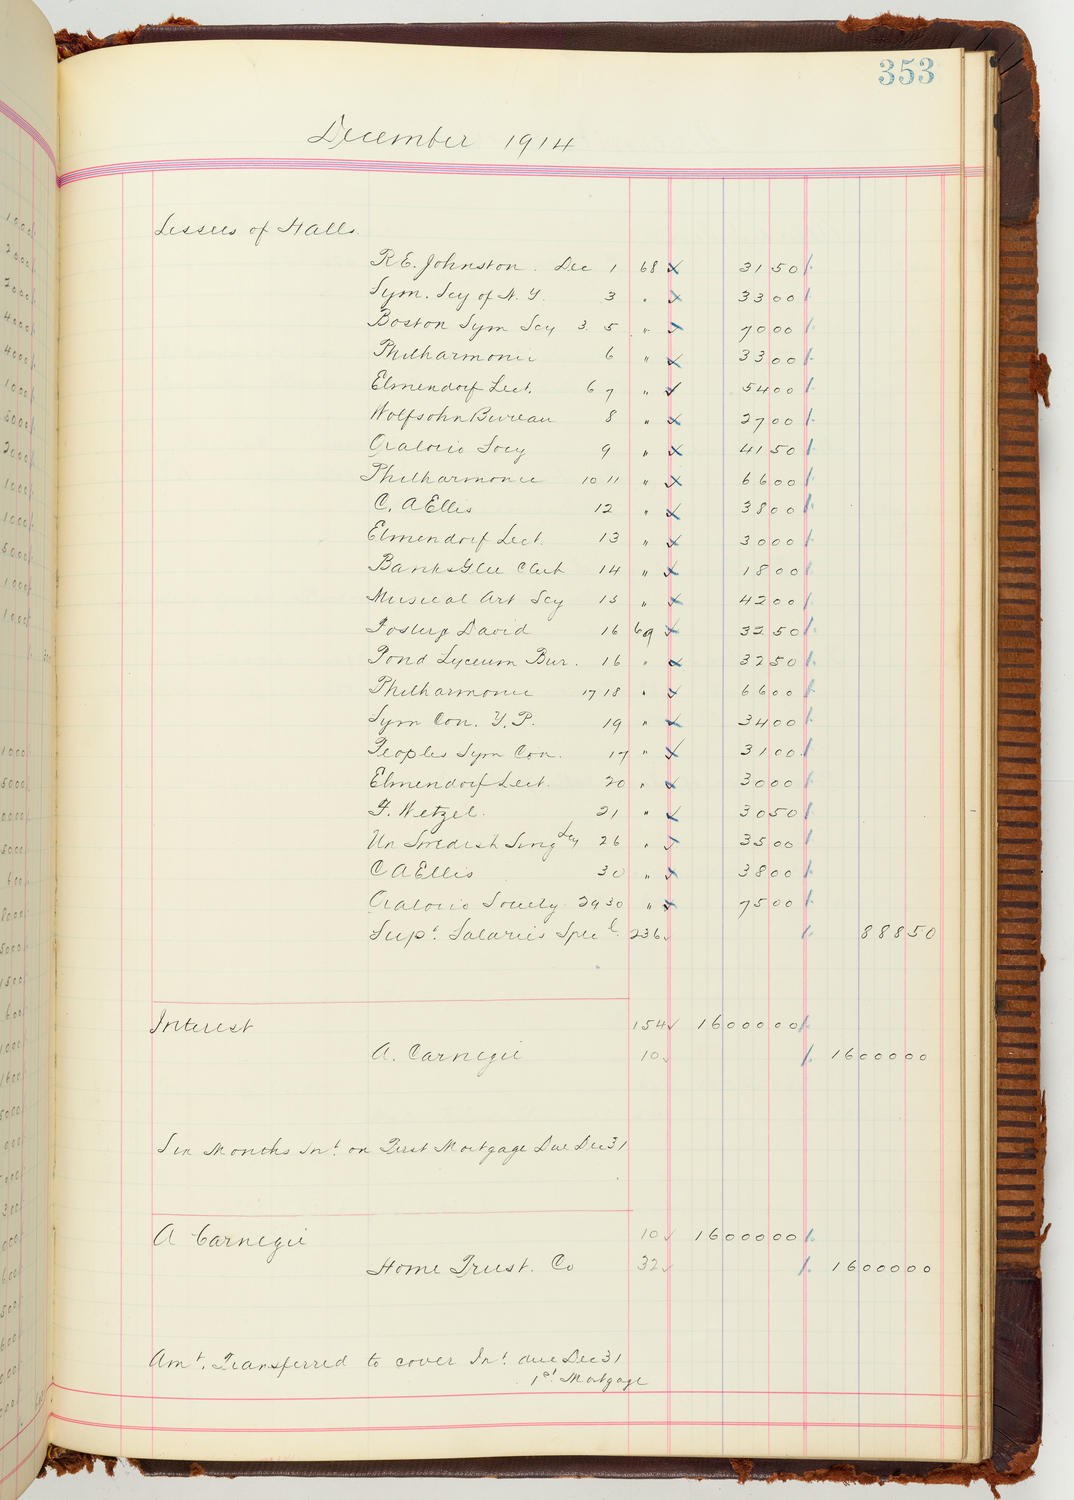 353
December 1914
Lessees of Halls.
R.E. Johnston. Dec 1 68 31 50
Sym. Scy of N.Y. 3 " 33 00
Boston Sym Scy 3. 5 " 70 00
Philharmonic 6 " 33 00
Elmendorf Lect. 6 7 " 54 00
Wolfsohn Bureau 8 " 27 00
Oratorio Socy 9 " 41 50
Philharmonic 10 11 " 66 00
C. A Ellis 12 " 38 00
Elmendorf Lect. 13 " 30 00
Banks Glee Club 14 " 18 00
Musical Art Scy 15 " 42 00
Foster & David 16 69 32 50
Pond Lyceum Bur. 16 " 32 50
Philharmonic 17 18 " 66 00
Sym Con. Y. P. 19 " 34 00
Peoples Sym Con. 17 " 31 00
Elmendorf Lect. 20 " 30 00
F. Wetzel. 21 " 30 50
Un Swedish Sing Scy 26 " 35 00
C A Ellis 30 " 38 00
Oratorio Society 29 30 " 75 00
Supt. Salaries Specl. 236 888 50
Interest 154 16000 00
A. Carnegie 10 16000 00
Six Months Int. on First Mortgage Due Dec 31
A Carnegie 10 16000 00
Home Trust. Co 32 16000 00
Amt. Transferred to cover Int. due Dec 31
1st Mortgage